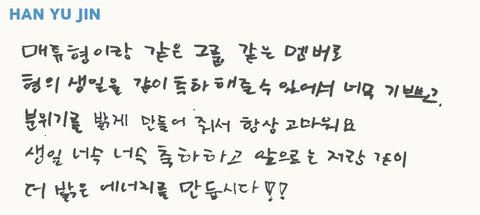 HAN YU JIN
매튜형이랑 같은 그룹, 같은 멤버로
형의 생일을 같이 축하해줄 수 있어서 너무 기쁘고,
분위기를 밝게 만들어 줘서 항상 고마워요
생일 너무 너무 축하하고 앞으로는 저랑 같이
더 밝은 에너지를 만듭시다!!